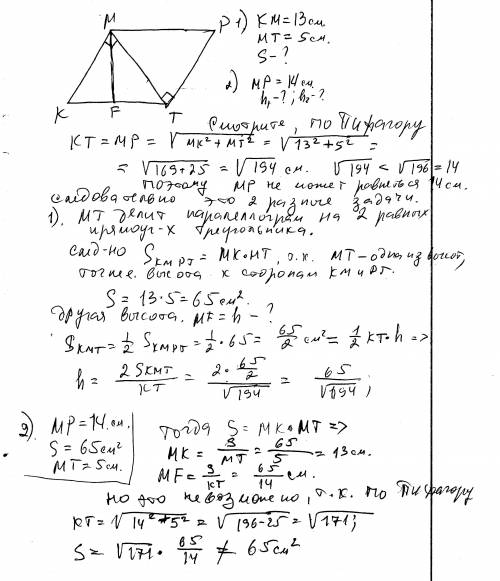 M
P
K
F
T
1) KM = 13 см.
MT = 5 см.
S - ?
2) MP = 14 см.
h₁ - ?; h₂ - ?
Смотрите, по Пифагору
KT = MP = √MK² + MT² = √13² + 5² =
= √169+25 = √194 см. √194 < √196 = 14
Поэтому MP не может равняться 14 см.
следовательно это 2 разные задачи.
1). MT делит параллелограм на 2 равных
прямоуг-х треугольника.
след-но S KMPT = MK·MT, т.к. MT - одна из высот,
точнее высота к сторонам KM и PT.
S = 13·5 = 65 см².
другая высота. MF = h - ?
S KMT = 1/2 S KMPT = 1/2 · 65 = 65/2 см² = 1/2 KT·h =>
h = 2 S KMT / KT = 2· 65/2 / √194 = 65/√194;
2). MP = 14 см.
S = 65 см²
MT = 5 см.
тогда S = MK·MT =>
MK = S/MT = 65/5 = 13 см.
MF = S/KT = 65/14 см.
но это невозможно, т.к. по Пифагору
KT = √14² + 5² = √196-25 = √171;
S = √171 · 65/14 ≠ 65 см²